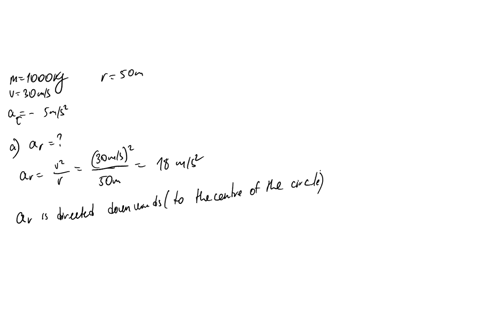 m=1000kg r=50m
v=30m/s
a_τ=- 5m/s²
a) a_r=?
a_r= v²/r = (30m/s)²/50m = 18 m/s²
a_r is directed downwards (to the centre of the circle)